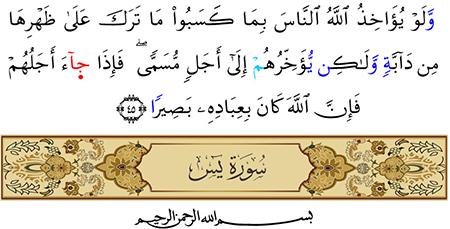 وَلَوْ يُؤَاخِذُ ٱللَّهُ ٱلنَّاسَ بِمَا كَسَبُوا۟ مَا تَرَكَ عَلَىٰ ظَهْرِهَا
مِن دَآبَّةٍ وَلَـٰكِن يُؤَخِّرُهُمْ إِلَىٰٓ أَجَلٍ مُّسَمًّى ۖ فَإِذَا جَآءَ أَجَلُهُمْ
فَإِنَّ ٱللَّهَ كَانَ بِعِبَادِهِۦ بَصِيرًۢا ﴿٤٥﴾
سُورَةُ يسٓ
بسم الله الرحمن الرحيم